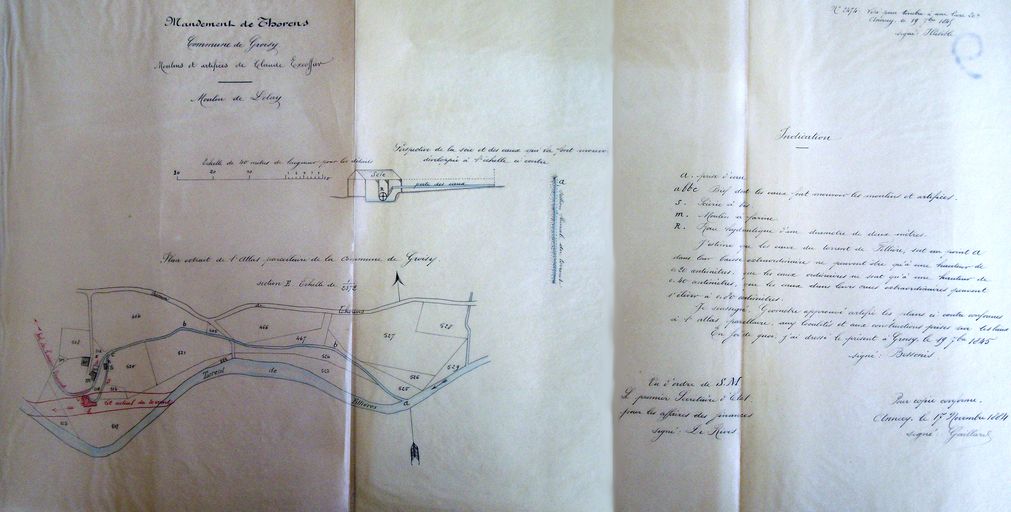 Mandement de Thorens
Commune de Groisy
Moulins et artifices de Claude Excoffier
Moulin de Delay
Echelle de 40 mètres de longueur pour les détails
30 20 10
Perspective de la scie et des eaux qui la font mouvoir
à l'échelle ci contre
Scie
perte des eaux
a
Plan extrait de l'Atlas parcellaire de la Commune de Groisy
section E Echelle de 1/2372
de Thorens
Torrent de Fillière
Lit actuel du torrent
b
b
a
466
467
527
528
529
526
525
524
523
521
N° 2474. Vu pour timbre à une livre 20 c
Annecy, le 19 7bre 1845
signé:
Indication
a. prise d'eau
abbc Bief dont les eaux font mouvoir les moulins et artifices.
S. Scierie à bois
m. Moulin à farine
R. Roue hydraulique d'un diamètre de deux mètres.
J'estime que les eaux du torrent de Fillière, sur un point A
dans leur baisse extraordinaire ne peuvent être qu'à une hauteur de
0.20 centimètres, que les eaux ordinaires ne sont qu'à une hauteur de
0.40 centimètres, que les eaux dans leurs crues extraordinaires peuvent
s'élever à 0.80 centimètres.
Je soussigné Géomètre approuvé certifie les plans ci contre conformes
à l'atlas parcellaire, aux localités et aux constructions prises sur les lieux
En foi de quoi, j'ai dressé le présent à Groisy, le 19 7bre 1845
signé: Bessonis
Vu d'ordre de S.M
Le premier Secrétaire d'Etat
pour les affaires des finances
signé: De Rives
Pour copie conforme.
Annecy, le 17 Novembre 1884
signé: Gaillard